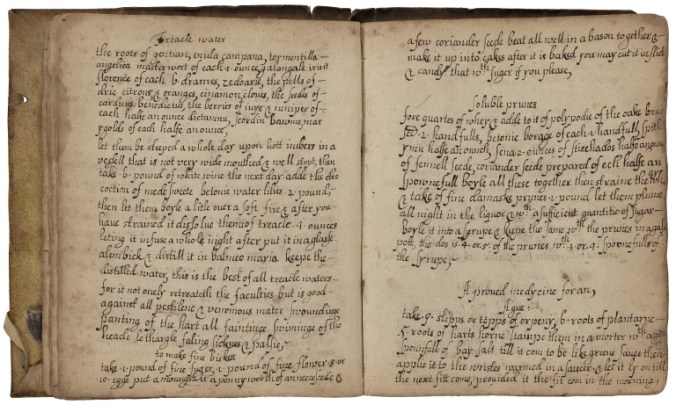 Treacle water
the roots of gentian, enula campana, tormentilla
angelica masterwort of each 1 ounce, galangale irius
florence of each 6 drames, zedoarie, the pills of
drie citrons & oranges, cinamon, cloves, the seeds of
carduus benedictus, the berries of ivye & iuniper of
each halfe an ounce dictamus, scordiu baume, mar
ygolds of each halfe an ounce,
let them be steped a whole day upon hott imbers in a
vessell that is not very wide mouthed & well stopt, then
take 6 pound of whit wine the next day adde the dec
coction of medesweete betonie water lilies 2 pound,
then let them boyle a litle over a soft fire & after you
have strained it disolve therin of treacle 4 ounces
leting it infuse a whole night after put it in a glasse
alembick & distill it in balneo maria keepe the
distilled water, this is the best of all treacle waters
for it not onely retreateth the faculties but is good
against all pestilent & venomous mater swoundinge
panting of the hart all faintinge swiminge of the
heade lethargie faling sicknes & palsie,
to make fine bisket
take 1 pound of fine suger, 1 pound of fine flower 8 or
10 eggs put amongst it a penny worth of anneceseede &
a few coriander seede beat all well in a bason together &
make it up into cakes after it is baked you may cut it in slices
& candy that wth suger if you please,
Soluble prunes
fore quartes of whey & adde to it of polypodie of the oake
2 handfulls, betonie borage of each 1 handfull,
halfe an ounch, sena 2 ounces of halfe an ounce
of fennell seede, coriander seede prepared of ech halfe an
spownefull boyle all these together then straine the
& take of fine damaske prunes 1 pound let them plume
all night in the liquor & wth a suficient quantitie of sugar
boyle it into a syrupe & keepe the same wth the prunes in a galy
pott, the dos is 4 or 5 of the prunes wth 3 or 4 spoonefulls of
the syrupe,
A proved medicine for an
Ague
take 9 slipps or topps of orpeny, 6 roots of plantayne
5 roots of harts horne stampe them in a morter wth a
spownfull of bay salt till it com to be like greene sauce then
apply it to the wristes warmed in a saucer & let it ly on till
the next fitt come, provided it the fit com in the morning